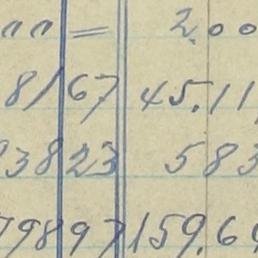 " " = 2.00
8/67 45.11
93823 583
79897 159.69